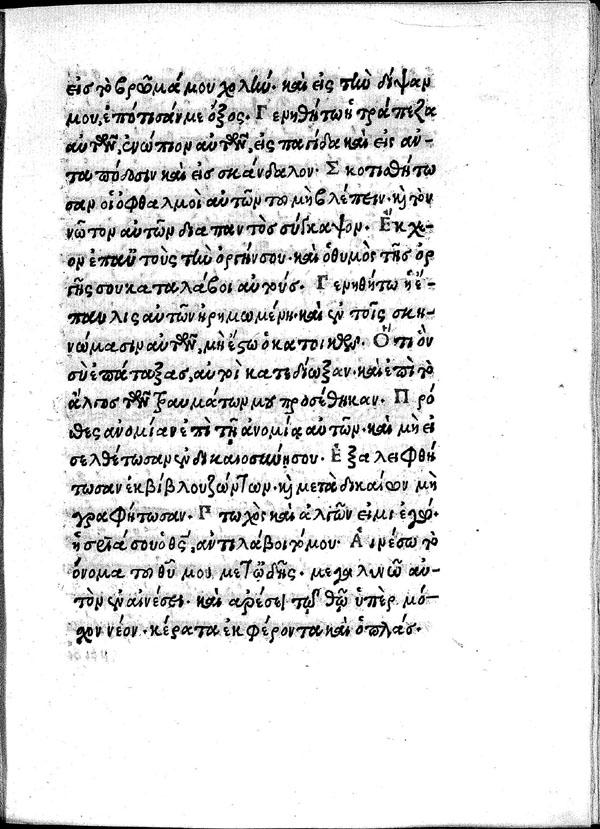 εἰς τὸ βρῶμά μου χολὴν· καὶ εἰς τὴν δίψαν
μου, ἐπότισάν με ὄξος. Γενηθήτω ἡ τράπεζα
αὐτῶν, ἐνώπιον αὐτῶν, εἰς παγίδα καὶ εἰς ἀν
ταπόδοσιν καὶ εἰς σκάνδαλον· Σκοτισθήτω
σαν οἱ ὀφθαλμοὶ αὐτῶν τοῦ μὴ βλέπειν· κὴ τὸν
νῶτον αὐτῶν διαπαντὸς σύγκαψον. Ἔκχε
ον ἐπ' αὐτοὺς τὴν ὀργήν σου· καὶ ὁ θυμὸς τῆς ὀρ
γῆς σου καταλάβοι αὐτούς. Γενηθήτω ἡ ἔ-
παυλις αὐτῶν ἠρημωμένη· καὶ ἐν τοῖς σκη-
νώμασιν αὐτῶν, μὴ ἔστω ὁ κατοικῶν. Ὅτι ὃν
σὺ ἐπάταξας, αὐτοὶ κατεδίωξαν· καὶ ἐπὶ τὸ
ἄλγος τῶν τραυμάτων μου προσέθηκαν. Πρό
σθες ἀνομίαν ἐπὶ τῇ ἀνομίᾳ αὐτῶν· καὶ μὴ εἰ
σελθέτωσαν ἐν δικαιοσύνῃ σου. Ἐξαλειφθή
τωσαν ἐκ βίβλου ζώντων· κὴ μετὰ δικαίων μὴ
γραφήτωσαν. Πτωχὸς καὶ ἀλγῶν εἰμι ἐγώ·
ἡ σρία σου ὁ θς, ἀντιλάβοιτό μου. Αἰνέσω τὸ
ὄνομα τοῦ θῦ μου μετ' ᾠδῆς· μεγαλυνῶ αὐ-
τὸν ἐν αἰνέσει· καὶ ἀρέσει τῷ θῷ ὑπὲρ μό-
σχον νέον· κέρατα ἐκφέροντα καὶ ὁπλάς.